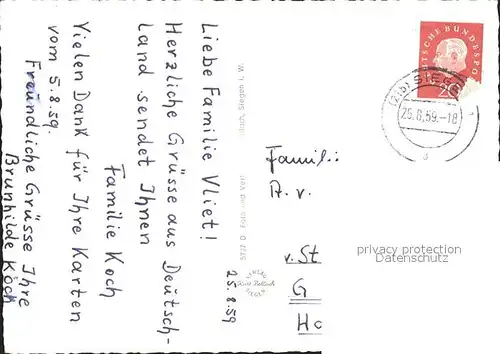 25.8.59
Liebe Familie Vliet!
Herzliche Grüsse aus Deutsch-
land sendet Ihnen
Familie Koch
Vielen Dank für Ihre Karten
vom 5.8.59.
Freundliche Grüsse Ihre
Brunhilde Koch
5722 D Foto und Verl
Siegen i. W.
VERLAG
SIEGEN
DEUTSCHE BUNDESPOST
20
(21b) SIEGEN 1
25.8.59.-18
d
Famili
A. v.
v. St
G
Ho
privacy protection
Datenschutz